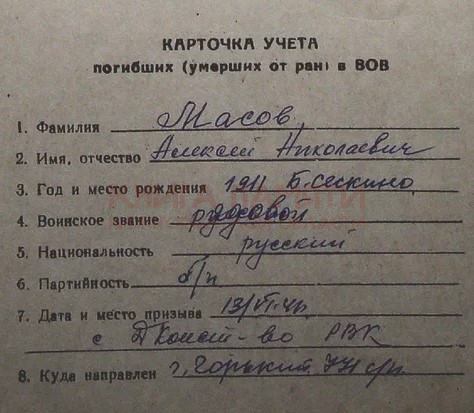 КАРТОЧКА УЧЕТА
погибших (умерших от ран) в ВОВ
1. Фамилия Масов
2. Имя, отчество Алексей Николаевич
3. Год и место рождения 1911 Б. Сескино
4. Воинское звание рядовой
5. Национальность русский
6. Партийность б/п
7. Дата и место призыва 13/VI-41
с Д Конст-во РВК
8. Куда направлен г. Горький